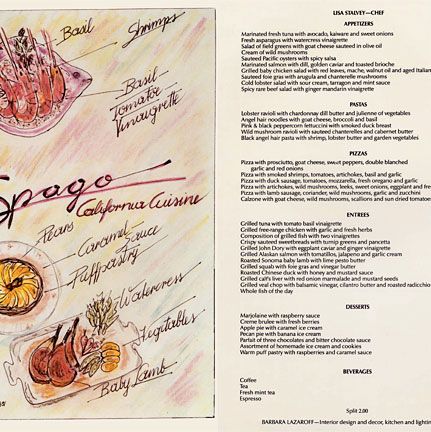 Basil
Shrimps
Basil
Tomato
Vinaigrette
Spago
California Cuisine
Pears
Caramel
Sauce
Puffpastry
Watercress
Vegetables
Baby Lamb
LISA STALVEY—CHEF
APPETIZERS
Marinated fresh tuna with avocado, kaiware and sweet onions
Fresh asparagus with watercress vinaigrette
Salad of field greens with goat cheese sauteed in olive oil
Cream of wild mushrooms
Sauteed Pacific oysters with spicy salsa
Marinated salmon with dill, golden caviar and toasted brioche
Grilled baby chicken salad with red leaves, mache, walnut oil and aged Italian
Sauteed foie gras with arugula and chanterelle mushrooms
Cold lobster salad with sour cream, tarragon and mint sauce
Spicy rare beef salad with ginger mandarin vinaigrette
PASTAS
Lobster ravioli with chardonnay dill butter and julienne of vegetables
Angel hair noodles with goat cheese, broccoli and basil
Pink & black peppercorn fettuccini with smoked duck breast
Wild mushroom ravioli with sauteed chanterelles and cabernet butter
Black angel hair pasta with shrimp, lobster butter and garden vegetables
PIZZAS
Pizza with prosciutto, goat cheese, sweet peppers, double blanched
garlic and red onions
Pizza with smoked shrimps, tomatoes, artichokes, basil and garlic
Pizza with duck sausage, tomatoes, mozzarella, fresh oregano and garlic
Pizza with artichokes, wild mushrooms, leeks, sweet onions, eggplant and
Pizza with lamb sausage, coriander, wild mushrooms, garlic and zucchini
Calzone with goat cheese, wild mushrooms, scallions and sun dried tomatoes
ENTREES
Grilled tuna with tomato basil vinaigrette
Grilled free-range chicken with garlic and fresh herbs
Composition of grilled fish with two vinaigrettes
Crispy sauteed sweetbreads with turnip greens and pancetta
Grilled John Dory with eggplant caviar and ginger vinaigrette
Grilled Alaskan salmon with tomatillos, jalapeno and garlic cream
Roasted Sonoma baby lamb with lime pesto butter
Grilled squab with foie gras and vinegar butter
Roasted Chinese duck with honey and mustard sauce
Grilled calf's liver with red onion marmalade and mustard seeds
Grilled veal chop with balsamic vinegar, cilantro butter and roasted radicchio
Whole fish of the day
DESSERTS
Marjolaine with raspberry sauce
Creme brulee with fresh berries
Apple pie with caramel ice cream
Pecan pie with banana ice cream
Parfait of three chocolates and bitter chocolate sauce
Assortment of homemade ice cream and cookies
Warm puff pastry with raspberries and caramel sauce
BEVERAGES
Coffee
Tea
Fresh mint tea
Espresso
Split 2.00
BARBARA LAZAROFF—Interior design and decor, kitchen and lighting